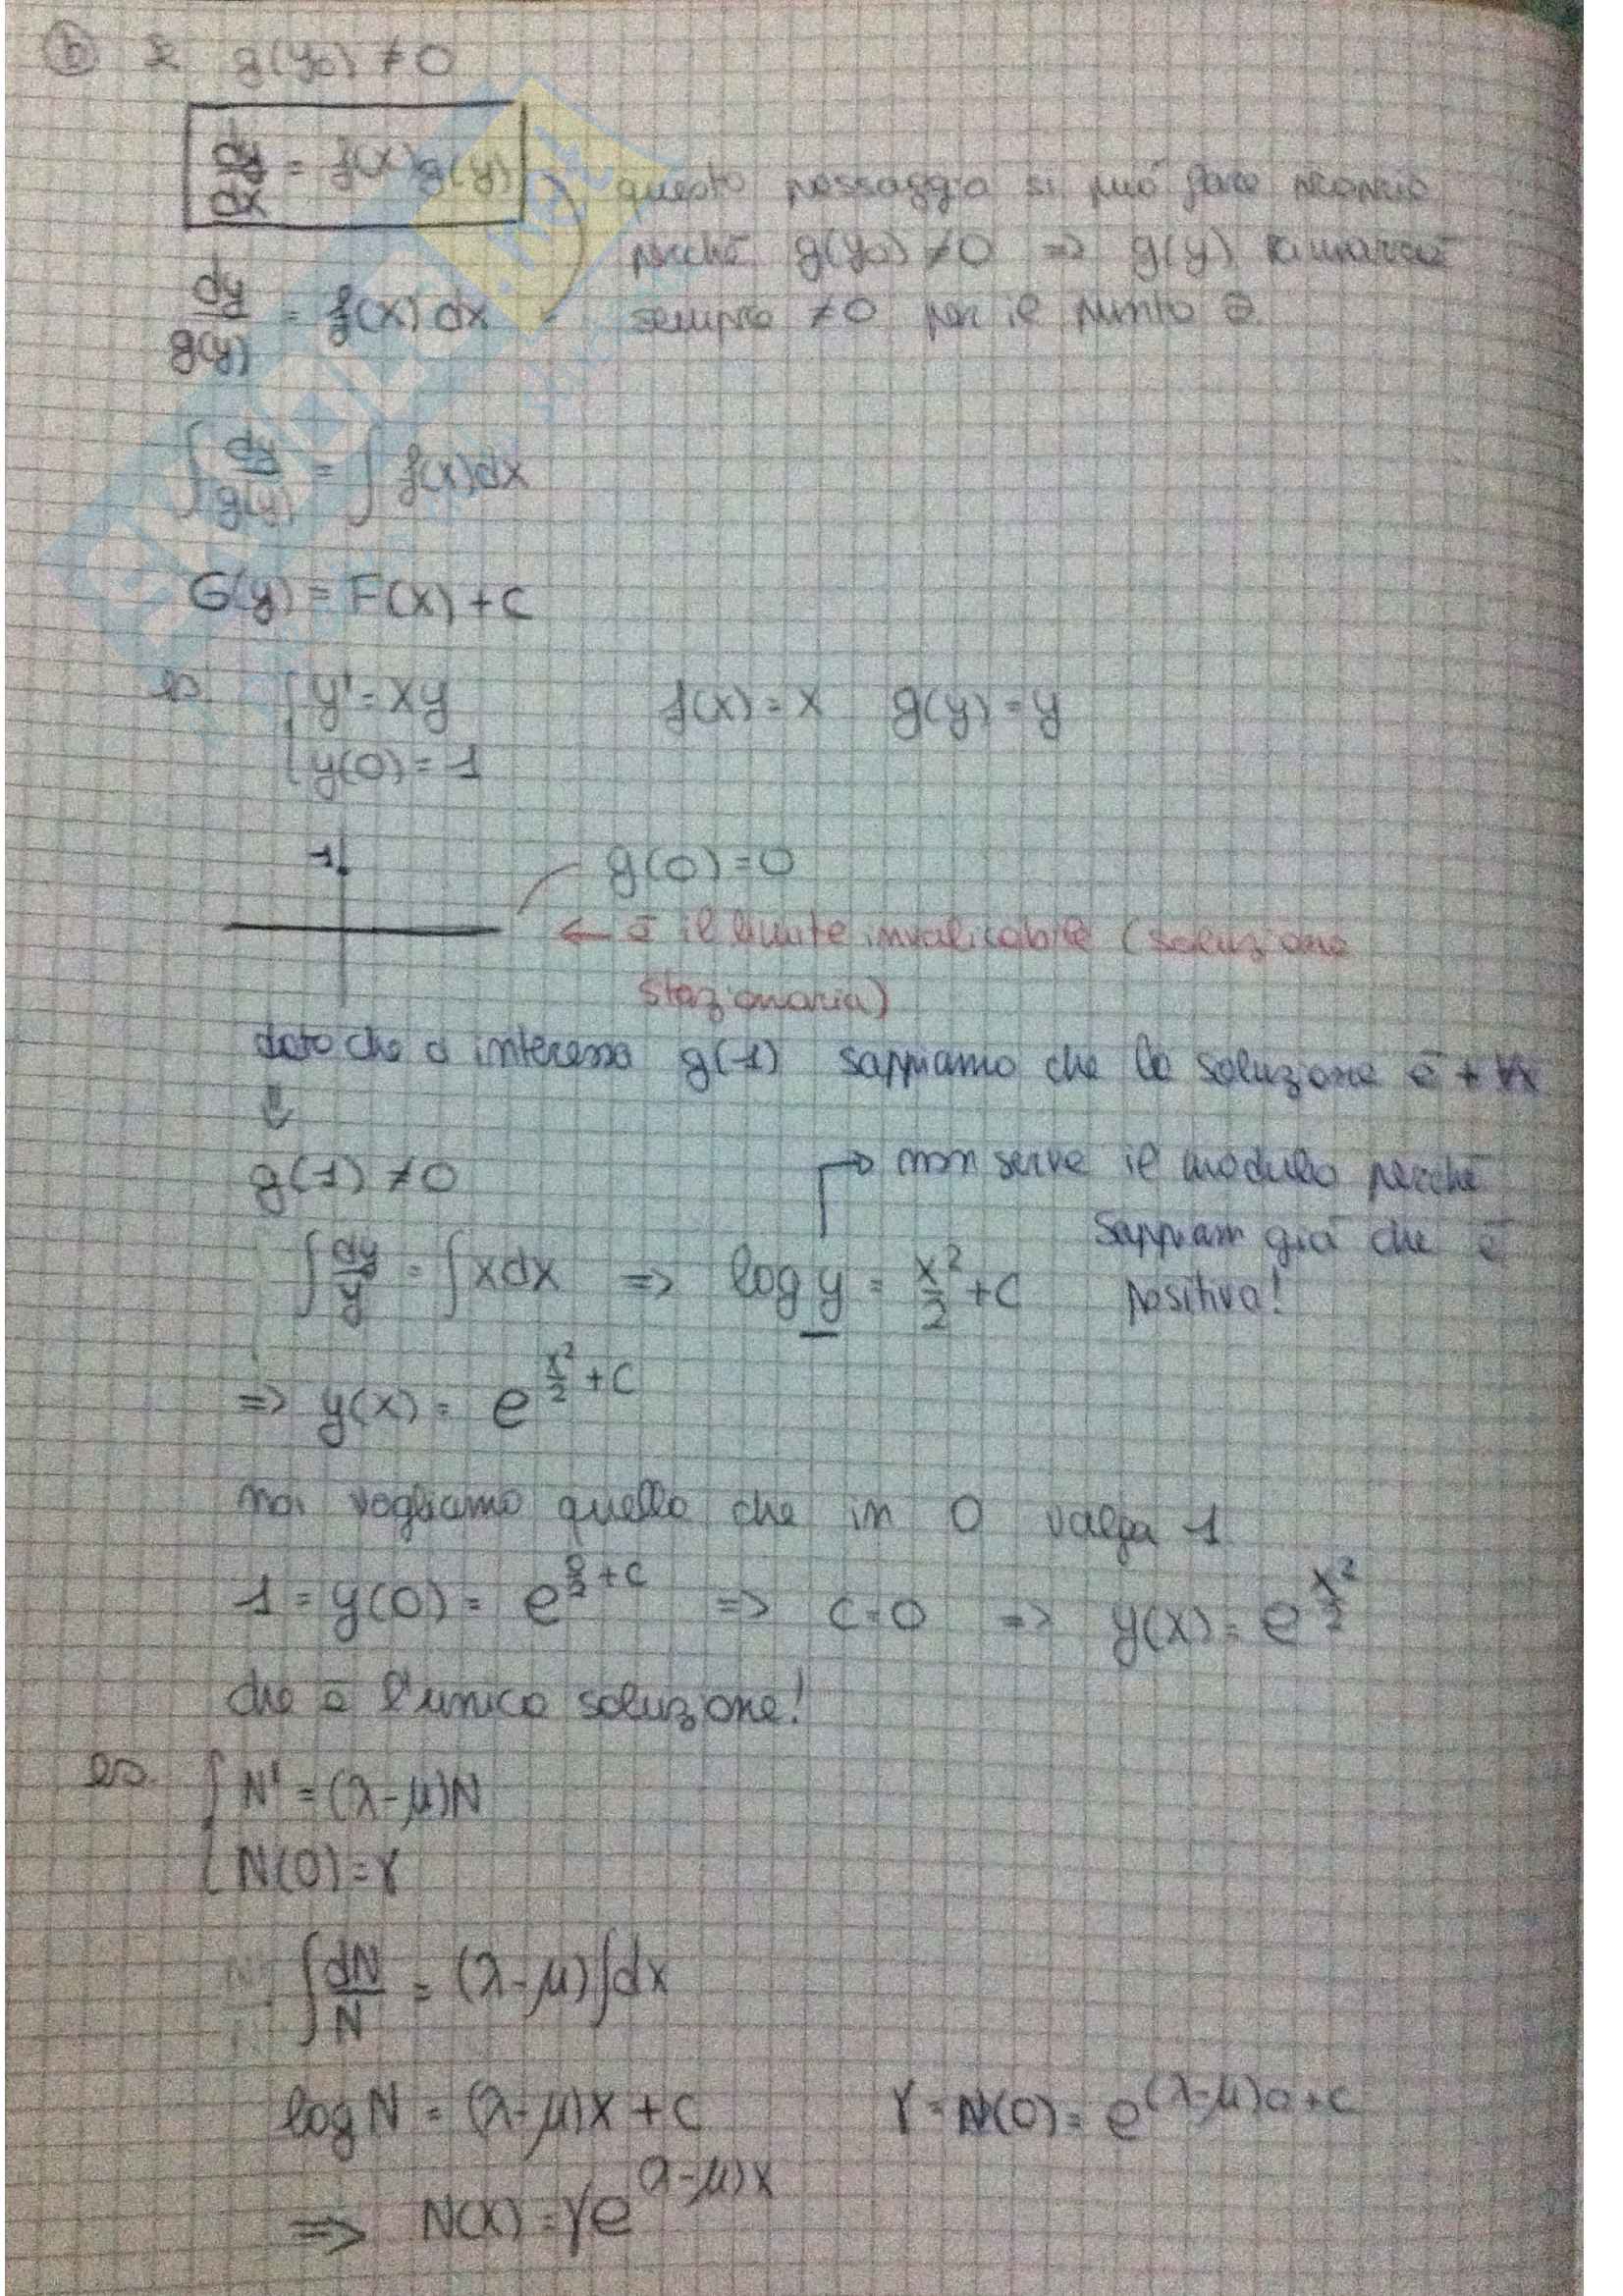 b) se g(y₀) ≠ 0
dy/dx = f(x) g(y) questo passaggio si può fare proprio
perché g(y₀) ≠ 0 ⇒ g(y) rimarrà
dy/g(y) = f(x) dx = sempre ≠ 0 per il punto a.
∫ dy/g(y) = ∫ f(x) dx
G(y) = F(x) + c
es. { y' = xy f(x) = x g(y) = y
{ y(0) = 1
1 g(0) = 0
← è il limite invalicabile (soluzione
stazionaria)
dato che ci interessa g(1) sappiamo che la soluzione è + ∀x
⇓
g(1) ≠ 0 → non serve il modulo perché
sappiam già che è
∫ dy/y = ∫ x dx ⇒ log y = x²/2 + c positiva!
⇒ y(x) = e^(x²/2 + c)
noi vogliamo quella che in 0 valga 1
1 = y(0) = e^(0/2 + c) ⇒ c = 0 ⇒ y(x) = e^(x²/2)
che è l'unica soluzione!
es. { N' = (λ-μ)N
{ N(0) = γ
∫ dN/N = (λ-μ) ∫ dx
log N = (λ-μ)x + c γ = N(0) = e^((λ-μ)0 + c)
⇒ N(x) = γe^((λ-μ)x)